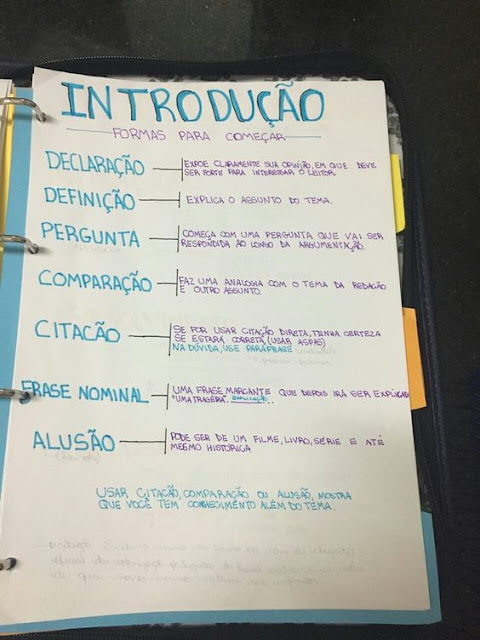 INTRODUÇÃO
FORMAS PARA COMEÇAR
DECLARAÇÃO
EXPÕE CLARAMENTE SUA OPINIÃO, EM QUE DEVE
SER FORTE PARA INTERESSAR O LEITOR.
DEFINIÇÃO
EXPLICA O ASSUNTO DO TEMA.
PERGUNTA
COMEÇA COM UMA PERGUNTA QUE VAI SER
RESPONDIDA AO LONGO DA ARGUMENTAÇÃO.
COMPARAÇÃO
FAZ UMA ANALOGIA COM O TEMA DA REDAÇÃO
E OUTRO ASSUNTO.
CITAÇÃO
SE FOR USAR CITAÇÃO DIRETA, TENHA CERTEZA
SE ESTARÁ CORRETA (USAR ASPAS)
NA DÚVIDA, USE PARÁFRASE
FRASE NOMINAL
UMA FRASE MARCANTE QUE DEPOIS IRÁ SER EXPLICADA
"UMA TRAGÉDIA". EXPLICAÇÃO...
ALUSÃO
PODE SER DE UM FILME, LIVRO, SÉRIE E ATÉ
MESMO HISTÓRICA.
USAR CITAÇÃO, COMPARAÇÃO OU ALUSÃO, MOSTRA
QUE VOCÊ TEM CONHECIMENTO ALÉM DO TEMA.